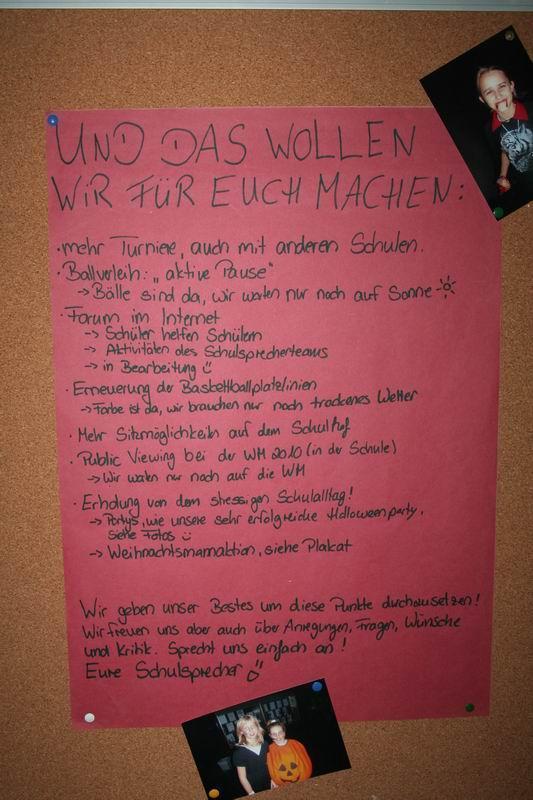 UND DAS WOLLEN
WIR FÜR EUCH MACHEN:
· mehr Turniere, auch mit anderen Schulen.
· Ballverleih: „aktive Pause“
→ Bälle sind da, wir warten nur noch auf Sonne
· Forum im Internet
→ Schüler helfen Schülern
→ Aktivitäten des Schulsprecherteams
→ in Bearbeitung
· Erneuerung der Basketballplatzlinien
→ Farbe ist da, wir brauchen nur noch trockenes Wetter
· Mehr Sitzmöglichkeiten auf dem Schulhof
· Public Viewing bei der WM 2010 (in der Schule)
→ Wir warten nur noch auf die WM
· Erholung von dem stressigen Schulalltag!
→ Partys, wie unsere sehr erfolgreiche Halloweenparty,
siehe Fotos
→ Weihnachtsmannaktion, siehe Plakat
Wir geben unser Bestes um diese Punkte durchzusetzen!
Wir freuen uns aber auch über Anregungen, Fragen, Wünsche
und Kritik. Sprecht uns einfach an!
Eure Schulsprecher